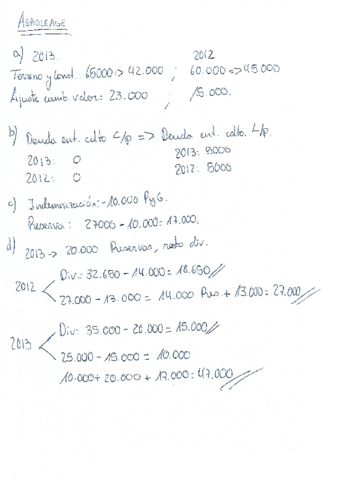 AGROLEASE
a) 2013. 2012
Terreno y const.: 65000 => 42.000 ; 60.000 => 45000
Ajuste camb valor: 23.000 ; 15.000.
b) Deuda ent. cdto C/p => Deuda ent. cdto. L/p.
2013: 0 2013: 5000
2012: 0 2012: 5000
c) Indemnización: -10.000 PyG.
Reserva: 27000 - 10.000 = 17.000.
d) 2013 => 20.000 Reservas, resto div.
2012
Div: 32.650 - 14.000 = 18.650
27.000 - 13.000 = 14.000 Res. + 13.000 = 27.000
2013
Div: 35.000 - 20.000 = 15.000
25.000 - 15.000 = 10.000
10.000 + 20.000 + 17.000 = 47.000